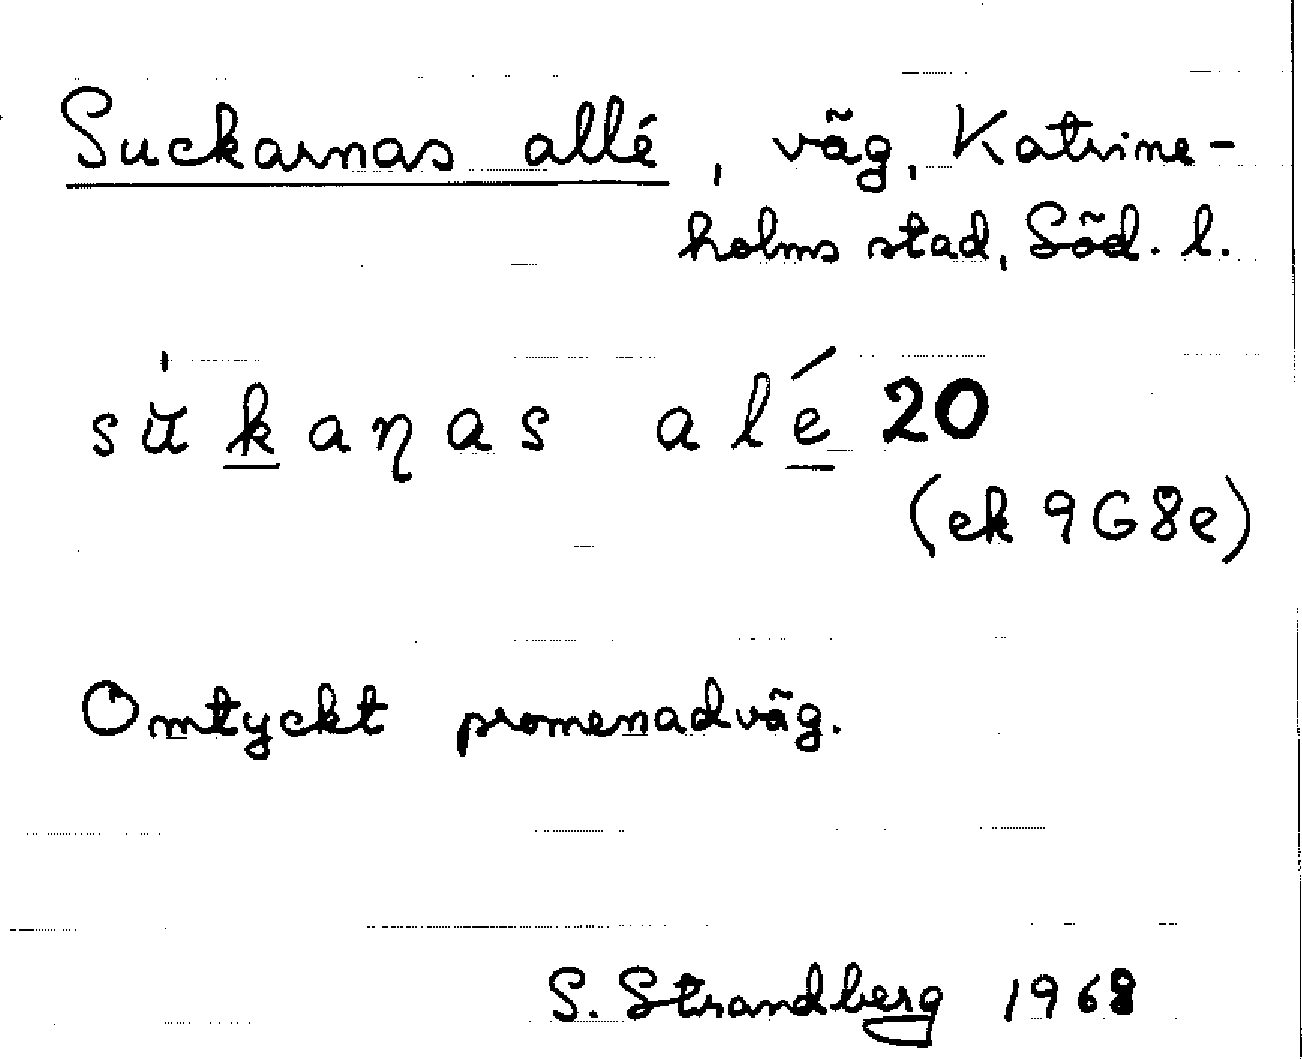 Suckarnas allé, väg, Katrine-
holms stad, Söd. l.
sùkaṇas alé 20
(ek 9G8e)
Omtyckt promenadväg.
S. Strandberg 1968